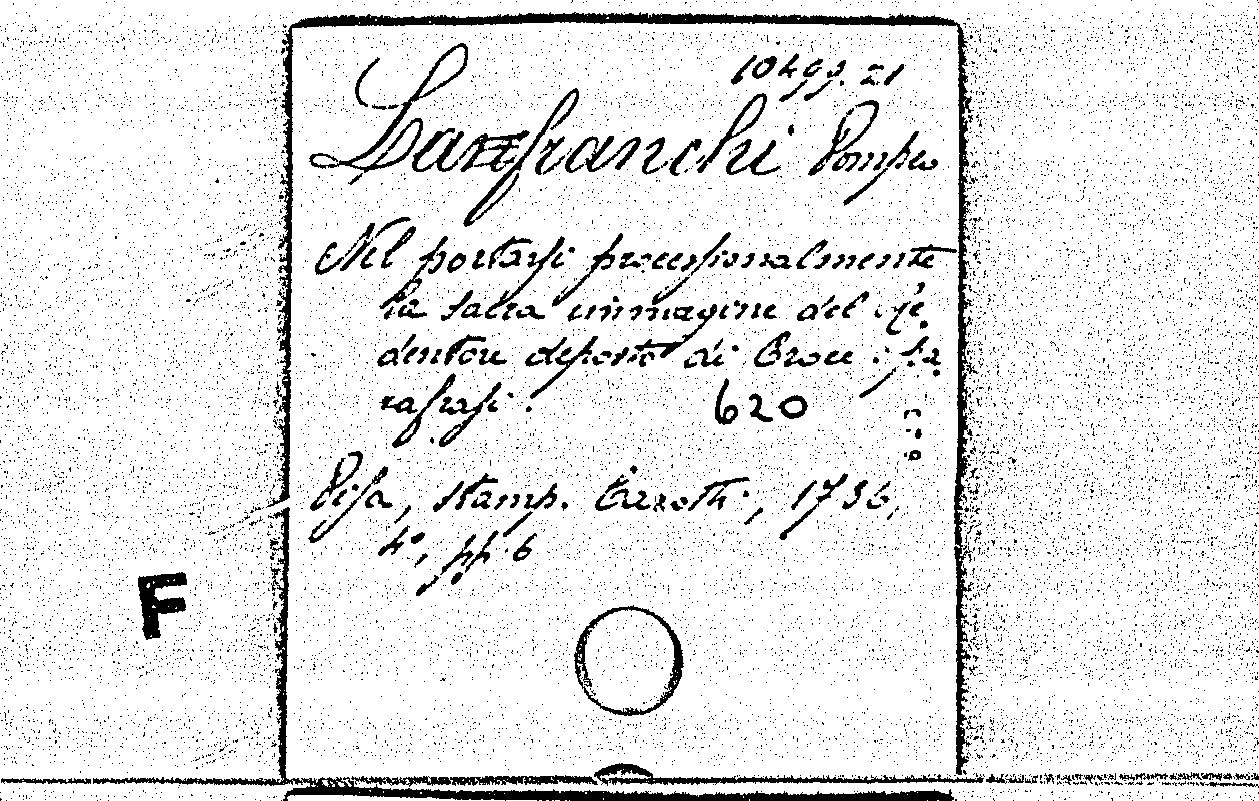 10499.21
Lanfranchi Pompeo
Nel portarsi processionalmente
la sacra immagine del Re
dentore deposto di Croce: pa
rafrasi. 620
Pisa, stamp. 1736,
4°, pp. 6
F